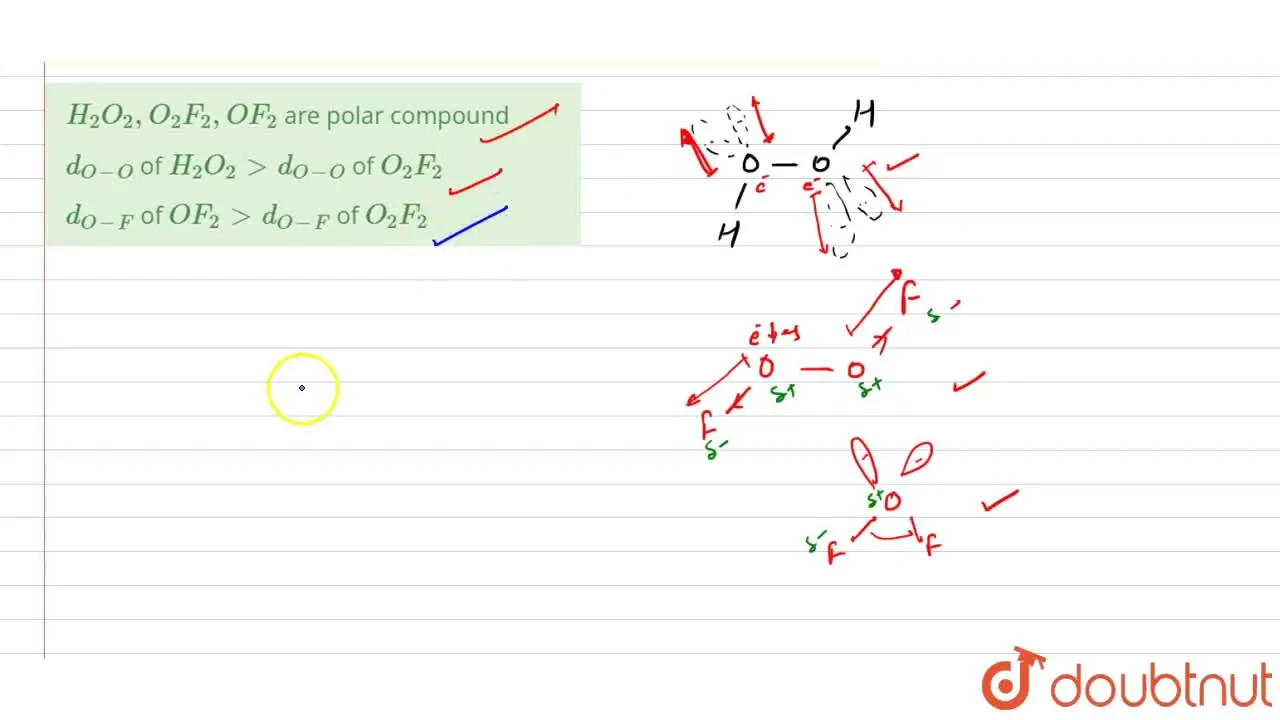 H₂O₂, O₂F₂, OF₂ are polar compound
d_{O−O} of H₂O₂ > d_{O−O} of O₂F₂
d_{O−F} of OF₂ > d_{O−F} of O₂F₂
H
O — O
e⁻ e⁻
H
F
δ⁻
O — O
δ+ δ+
F
δ⁻
δ+ O
δ⁻ F F
doubtnut